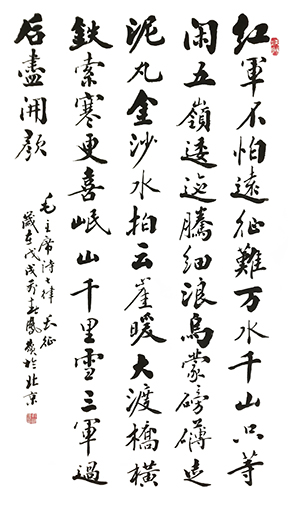 红軍不怕遠征難万水千山只等
闲五嶺逶迤騰細浪烏蒙磅礴走
泥丸金沙水拍云崖暖大渡橋橫
鉄索寒更喜岷山千里雪三軍過
后盡開顔
毛主席诗七律长征
歲在戊戌春鳳於北京